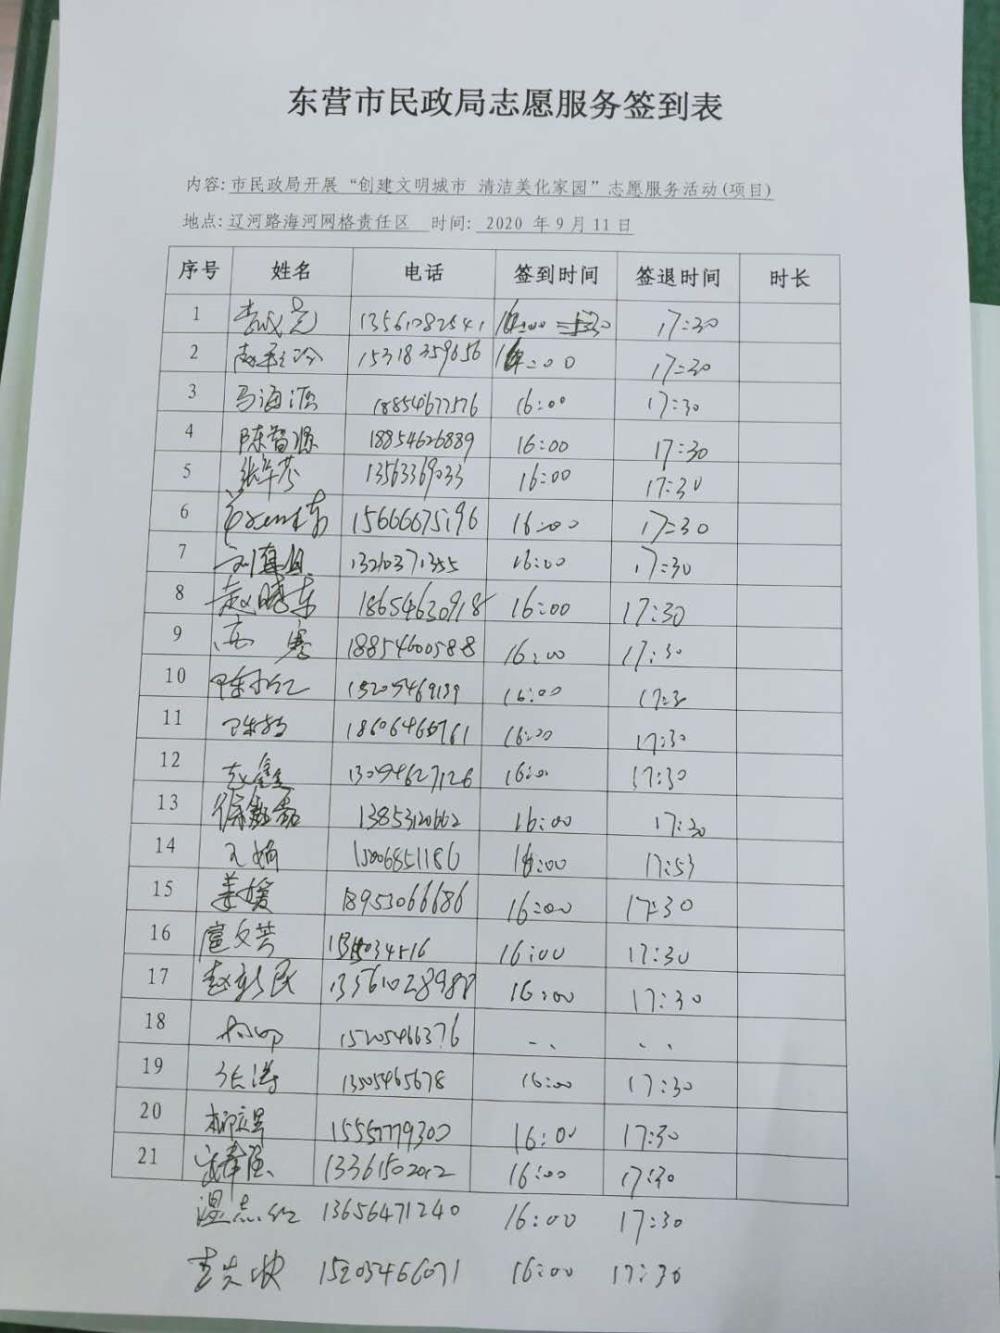 东营市民政局志愿服务签到表
内容: 市民政局开展“创建文明城市 清洁美化家园”志愿服务活动(项目)
地点: 辽河路海河网格责任区 时间: 2020 年 9 月 11 日
序号 姓名 电话 签到时间 签退时间 时长
1 17:30
2 15318359656 17:30
3 马海涯 18854677576 16:00 17:30
4 陈智源 18854626889 16:00 17:30
5 13563369033 16:00 17:30
6 15666675196 16:00 17:30
7 13210371355 16:00 17:30
8 赵晓东 18654630918 16:00 17:30
9 18854600588 16:00 17:30
10 15205469139 16:00
11 16:00 17:30
12 赵鑫 13094627126 16:00 17:30
13 徐毅磊 13853120662 16:00 17:30
14 15006851186 16:00 17:53
15 姜媛 18953066686 16:00 17:30
16 扈文芸 16:00 17:30
17 赵新民 16:00 17:30
18 15205466376
19 张涛 13505465678 16:00 17:30
20 15557779300 16:00 17:30
21 13361502012 16:00 17:30
温志红 13656471240 16:00 17:30
15205466071 16:00 17:30